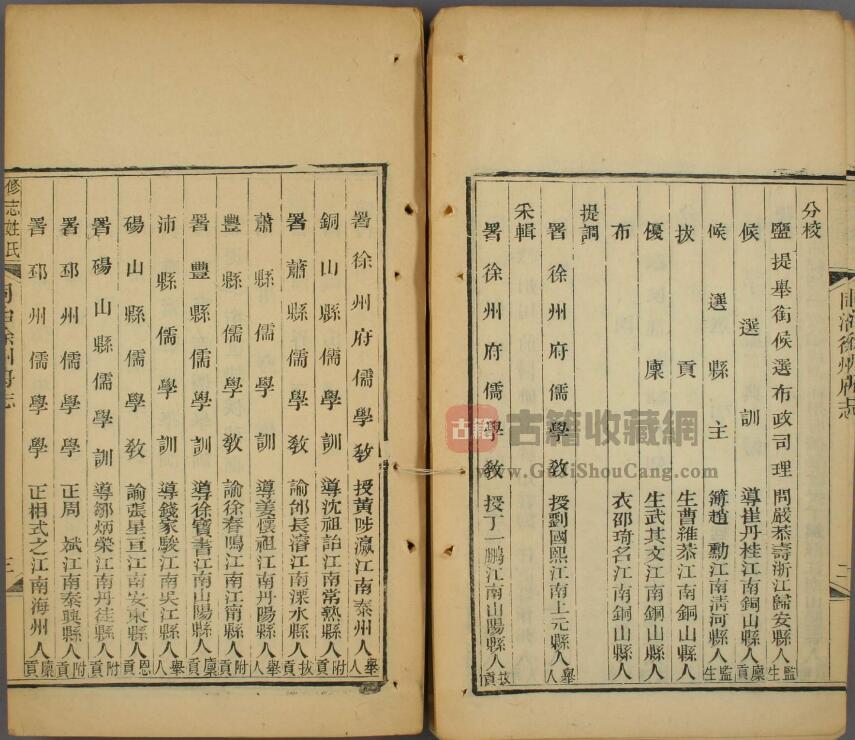 分校
鹽提舉銜候選布政司理問嚴恭壽浙江歸安縣人監生
候選訓導崔丹桂江南銅山縣人廩貢
候選縣主簿趙勷江南淸河縣人監生
拔貢生曹維恭江南銅山縣人
優廩生武其文江南銅山縣人
布衣邵琦名江南銅山縣人
提調
署徐州府儒學敎授劉國熙江南上元縣人舉人
采輯
署徐州府儒學敎授丁一鵬江南山陽縣人拔貢
同治徐州府志
二
署徐州府儒學敎授黃陟瀛江南泰州人舉人
銅山縣儒學訓導沈祖詒江南常熟縣人附貢
署蕭縣儒學敎諭邰長濬江南溧水縣人拔貢
蕭縣儒學訓導姜懷祖江南丹陽縣人舉人
豐縣儒學敎諭徐春鳴江南江甯縣人附貢
署豐縣儒學訓導徐寶書江南山陽縣人廩貢
沛縣儒學訓導錢家駿江南吳江縣人舉人
碭山縣儒學敎諭張星亘江南安東縣人恩貢
署碭山縣儒學訓導鄒炳榮江南丹徒縣人附貢
署邳州儒學學正周斌江南泰興縣人附貢
署邳州儒學學正相式之江南海州人廩貢
修志姓氏
同治徐州府志
三
古籍
古籍收藏網
www.GuJiShouCang.com